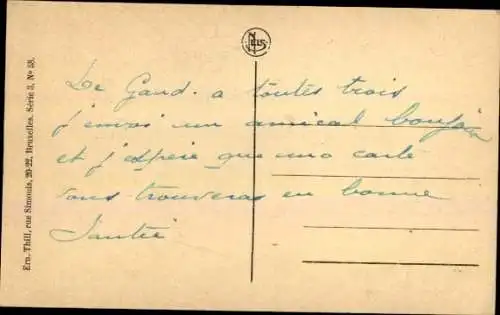 Ern. Thill, rue Simonis, 20-22, Bruxelles. Série 3, No 58.
NELS
De Gand. a toutes trois
j'envoi un amical bonjour
et j'espère que mo carte
vous trouveras en bonne
Santée